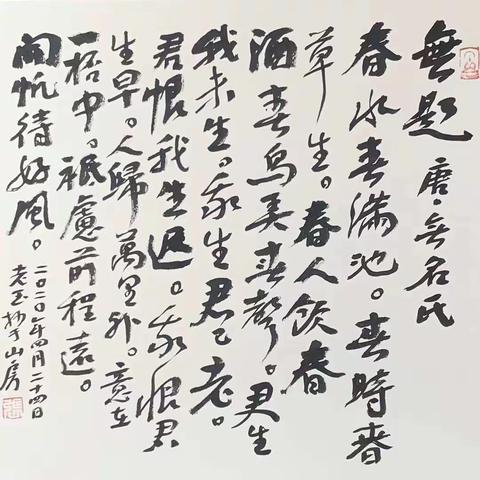 無題 唐·无名氏
春水春滿池。春時春
草生。春人飲春
酒春鳥美春聲。君生
我未生。我生君已老。
君恨我生遲。我恨君
生早。人歸萬里外。意在
一桮中。祗慮前程遠。
開帆待好風。
二〇二〇年四月二十四日
老玉抄于山房